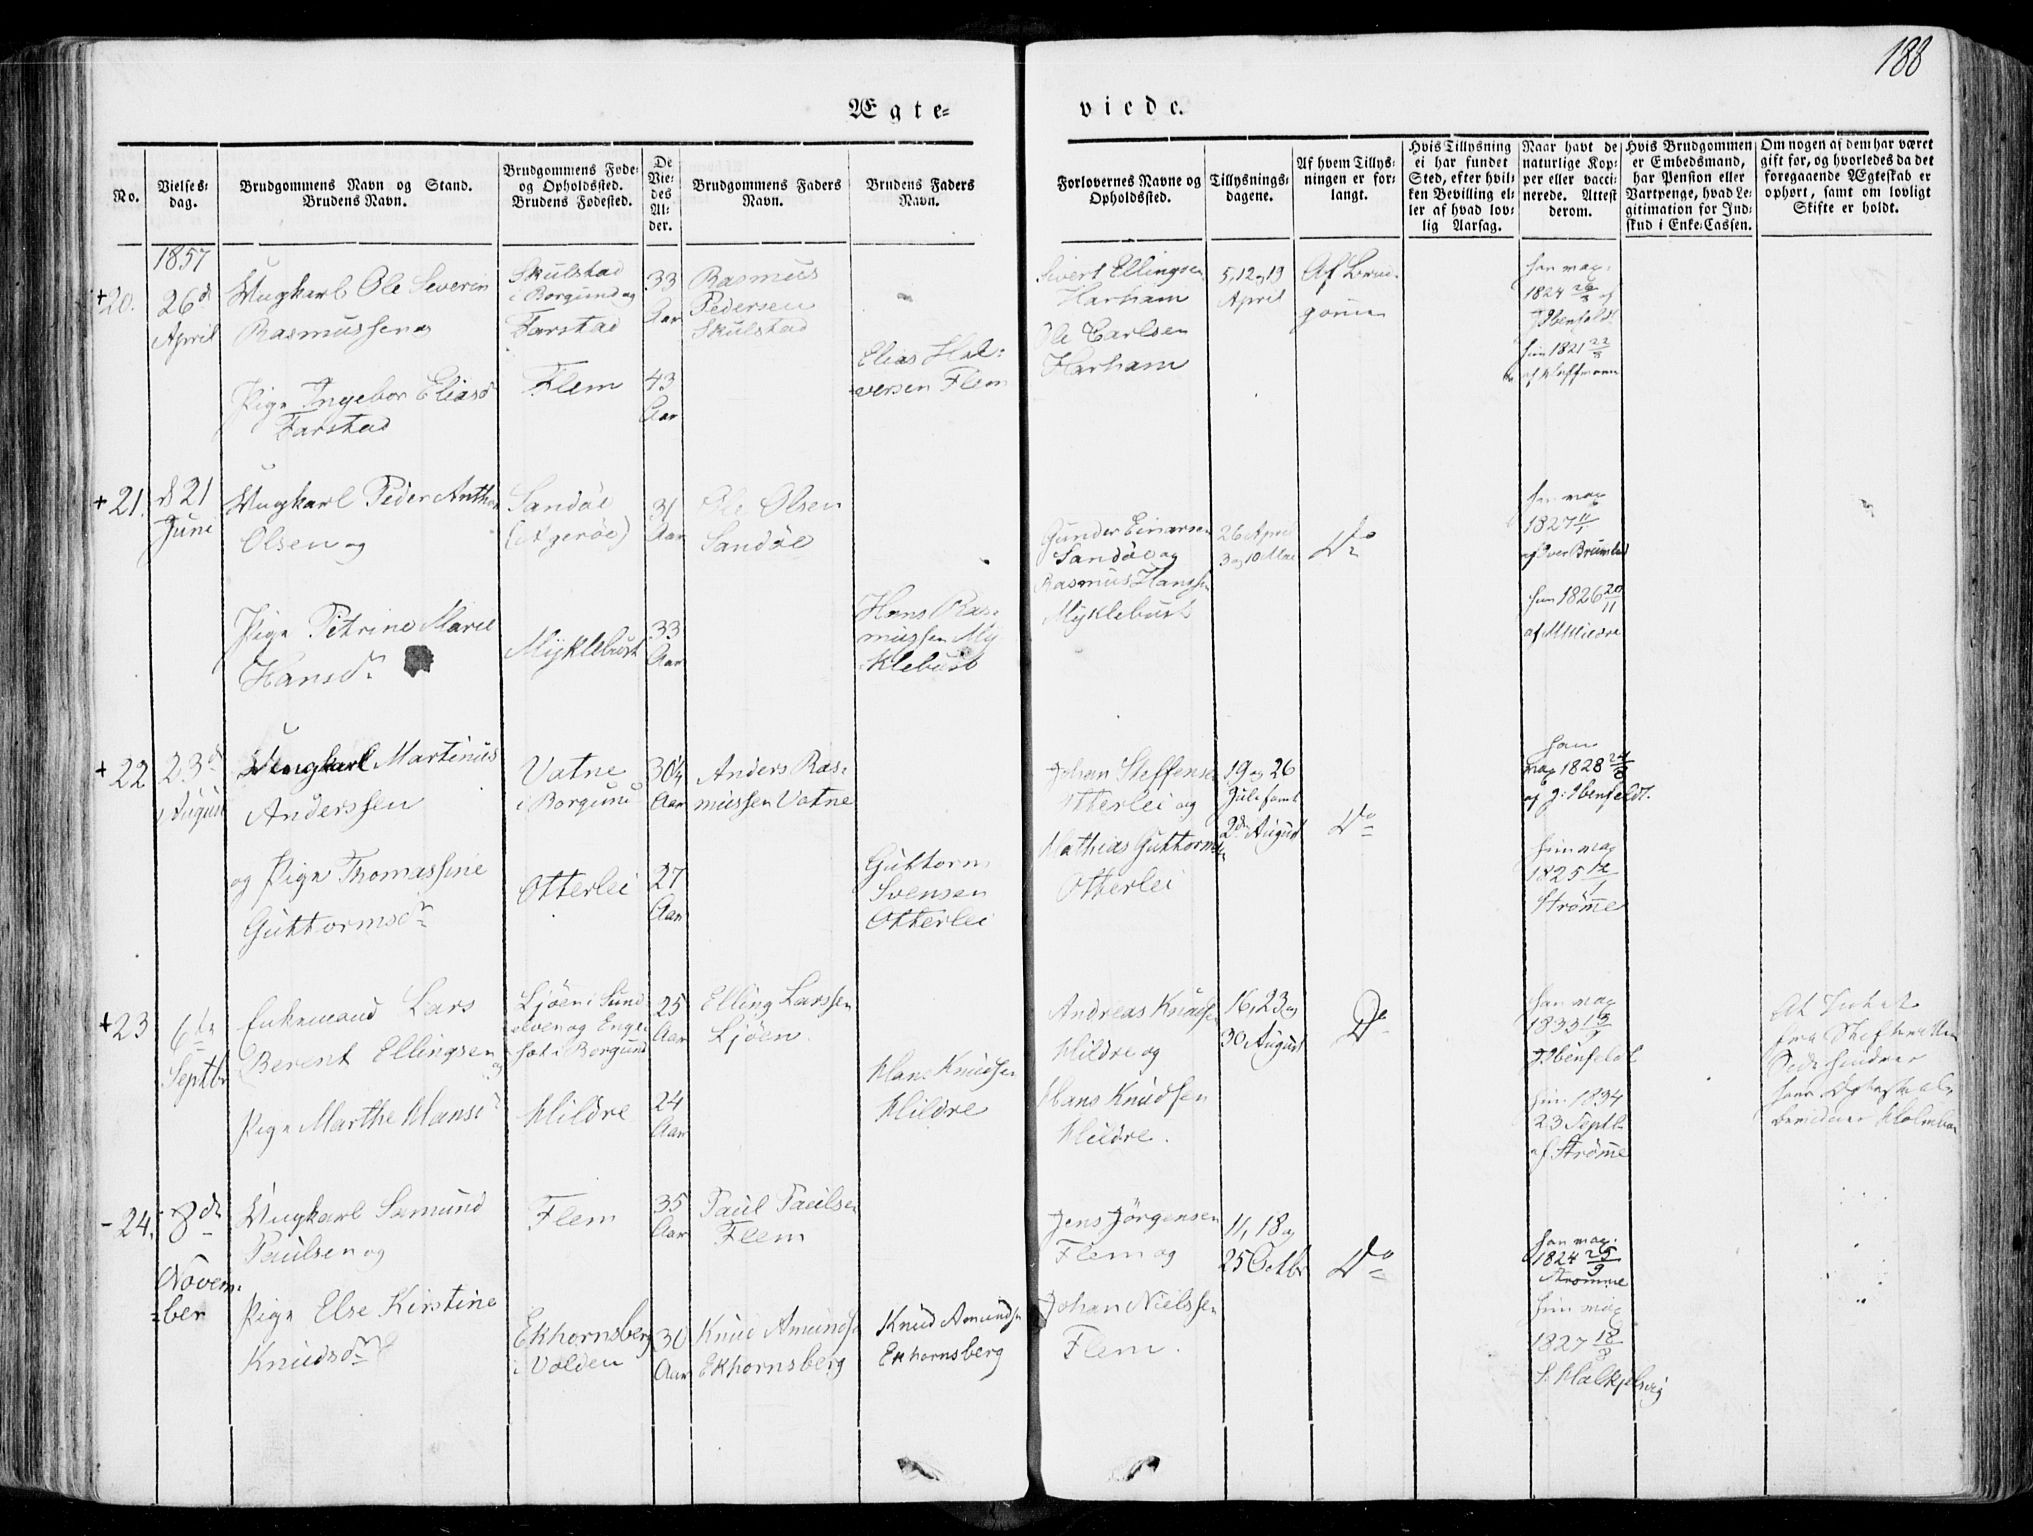 188
Ægte-
viede.
No.
Vielses-
dag.
Brudgommens Navn og Stand.
Brudens Navn.
Brudgommens Føde-
og Opholdssted.
Brudens Fødested.
De
Vie-
des
Al-
der.
Brudgommens Faders
Navn.
Brudens Faders
Navn.
Forlovernes Navne og
Opholdssted.
Tillysnings-
dagene.
Af hvem Tillys-
ningen er for-
langt.
Hvis Tillysning
ei har fundet
Sted, efter hvil-
ken Bevilling el-
ler af hvad lov-
lig Aarsag.
Naar havt de
naturlige Kop-
per eller vacci-
nerede. Attest
derom.
Hvis Brudgommen
er Embedsmand,
har Pension eller
Vartpenge, hvad Le-
gitimation for Ind-
skud i Enke-Cassen.
Om nogen af dem har været
gift før, og hvorledes da det
foregaaende Ægteskab er
ophørt, samt om lovligt
Skifte er holdt.
1857
+20.
26d
April
Ungkarl Ole Severin
Rasmussen og
Pige Ingebor Eliasd
Farstad
Skulstad
i Borgund og
Farstad
Flem
33
Aar
43
Aar
Rasmus
Pedersen
Skulstad
Elias Hal-
versen Flem
Sivert Ellingsen
Harham
Ole Carlsen
Harham
5, 12 og 19
April
Af Brud-
gommen
han vax.
1824 26/3 af
J Ibenfeldt
hun 1821 22/5
+21.
d 21
Juni
Ungkarl Peder Anthon
Olsen og
Pige Petrine Marie
Hansdr
Sandøe
(Agerøe)
Myklebust
31
Aar
33
Aar
Ole Olsen
Sandøe
Hans Ras-
mussen My
klebust
Gunder Einarsen
Sandøe og
Rasmus Hanssen
Myklebust
26 April
3 og 10 Mai
Do
han vax
1827 11/1
af Iver Brunstad
hun 1826 20/11
af M Hildre
+22
23d
August
Ungkarl Martinus
Anderssen
og Pige Thomassine
Guttormsdr
Vatne
i Borgund
Otterlei
30¼
Aar
27
Aar
Anders Ras-
mussen Vatne
Guttorm
Svensen
Otterlei
Johan Steffensen
Otterlei og
Mathias Guttormsen
Otterlei
19 og 26
Juli samt
2den August
Do
han
vax 1828 24/8
af J: Ibenfeldt.
hun vax
1825 12/1
Strømme
+23
6te
Septbr
Enkemand Lars
Berent Ellingsen
og
Pige Marthe Hansdr
Ljøen i Sund
elven og Enge-
set i Borgund
Hildre
25
Aar
24
Aar
Elling Larssen
Ljøen.
Hans Knudsen
Hildre
Andreas Knudsen
Hildre og
Hans Knudsen
Hildre.
16, 23 og
30 August
Do
han vax
1833 13/7
J Ibenfeldt
hun 1834
23 Septb.
af Strømme
At
fra Skifteretten
-24.
8de
Novem-
ber
Ungkarl Samund
Paulsen og
Pige Else Kirstine
Knudsdr
Flem
Ekhornsberg
i Volden
35
Aar
30
Aar
Paul Paulsen
Flem
Knud Amundsen
Ekhornsberg
Knud Amundsen
Ekhornsberg
Jens Jørgensen
Flem og
Johan Nielssen
Flem.
11, 18 og
25 Octbr
Do
han vax.
1824 25/9
Strømme
hun vax
1827 18/8
S. Halkjelsvig